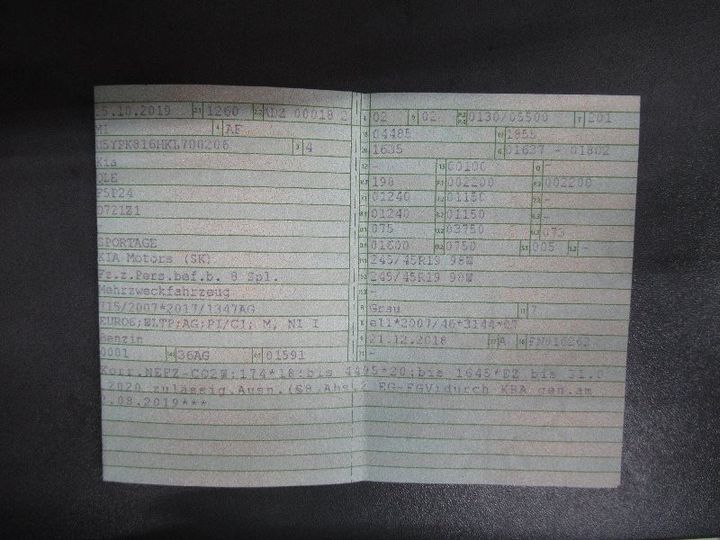 5.10.2019 1260 ADZ 00018 2
AF
U5YPK816HKL700206 4
Kia
QLE
F5P24
D721Z1
SPORTAGE
KIA Motors (SK)
Fz.z.Pers.bef.b. 8 Spl.
Mehrzweckfahrzeug
715/2007*2017/1347AG
EURO6;WLTP;AG;PI/CI; M, NI I
Benzin
0001 36AG 01591
02 02 0130/05500 201
04485 1855
1635 01637 - 01802
- 00100 -
190 002200 002200
01240 01150 -
01240 01150 -
075 03750 073
01600 0750 005 -
245/45R19 98W
245/45R19 98W
-
Grau 7
e11*2007/46*3144*07
21.12.2018 A
-
Korr.NEFZ-CO2W:174*18:bis 4495*20:bis 1645*EZ bis
2020 zulässig.Ausn. EG-FGV)durch KBA gen.am
.08.2019***